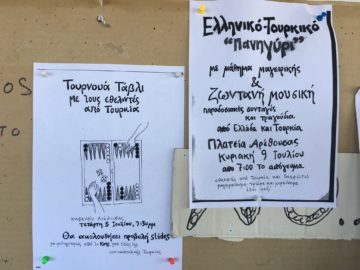 Τουρνουά Τάβλι
με τους εθελοντές
από Τουρκία
καφενείο Αρέθουσας
Τετάρτη 5 Ιουλίου, 7:30μμ
Θα ακολουθήσει προβολή slides
Ελληνικό-Τουρκικό
"Πανηγύρι"
με μάθημα μαγειρικής
&
Ζωντανή μουσική
παραδοσιακές συνταγές
και τραγούδια
από Ελλάδα και Τουρκία
Πλατεία Αρέθουσας
Κυριακή 9 Ιουλίου
από 7:00 το απόγευμα
ΟΣ
ΤΟ